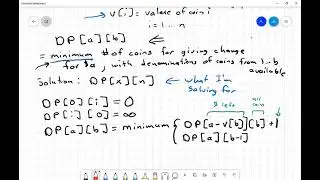 v[i] = value of coin i
i = 1... n
DP[a][b]
= minimum # of coins for giving change
for $a, with denominations of coins from 1..b
available
Solution: DP[x][n] what I'm
solving for
DP[0][i] = 0
$ left all
coins
DP[i][0] = ∞
DP[a][b] = minimum { DP[a-v[b]][b] + 1
DP[a][b-1]